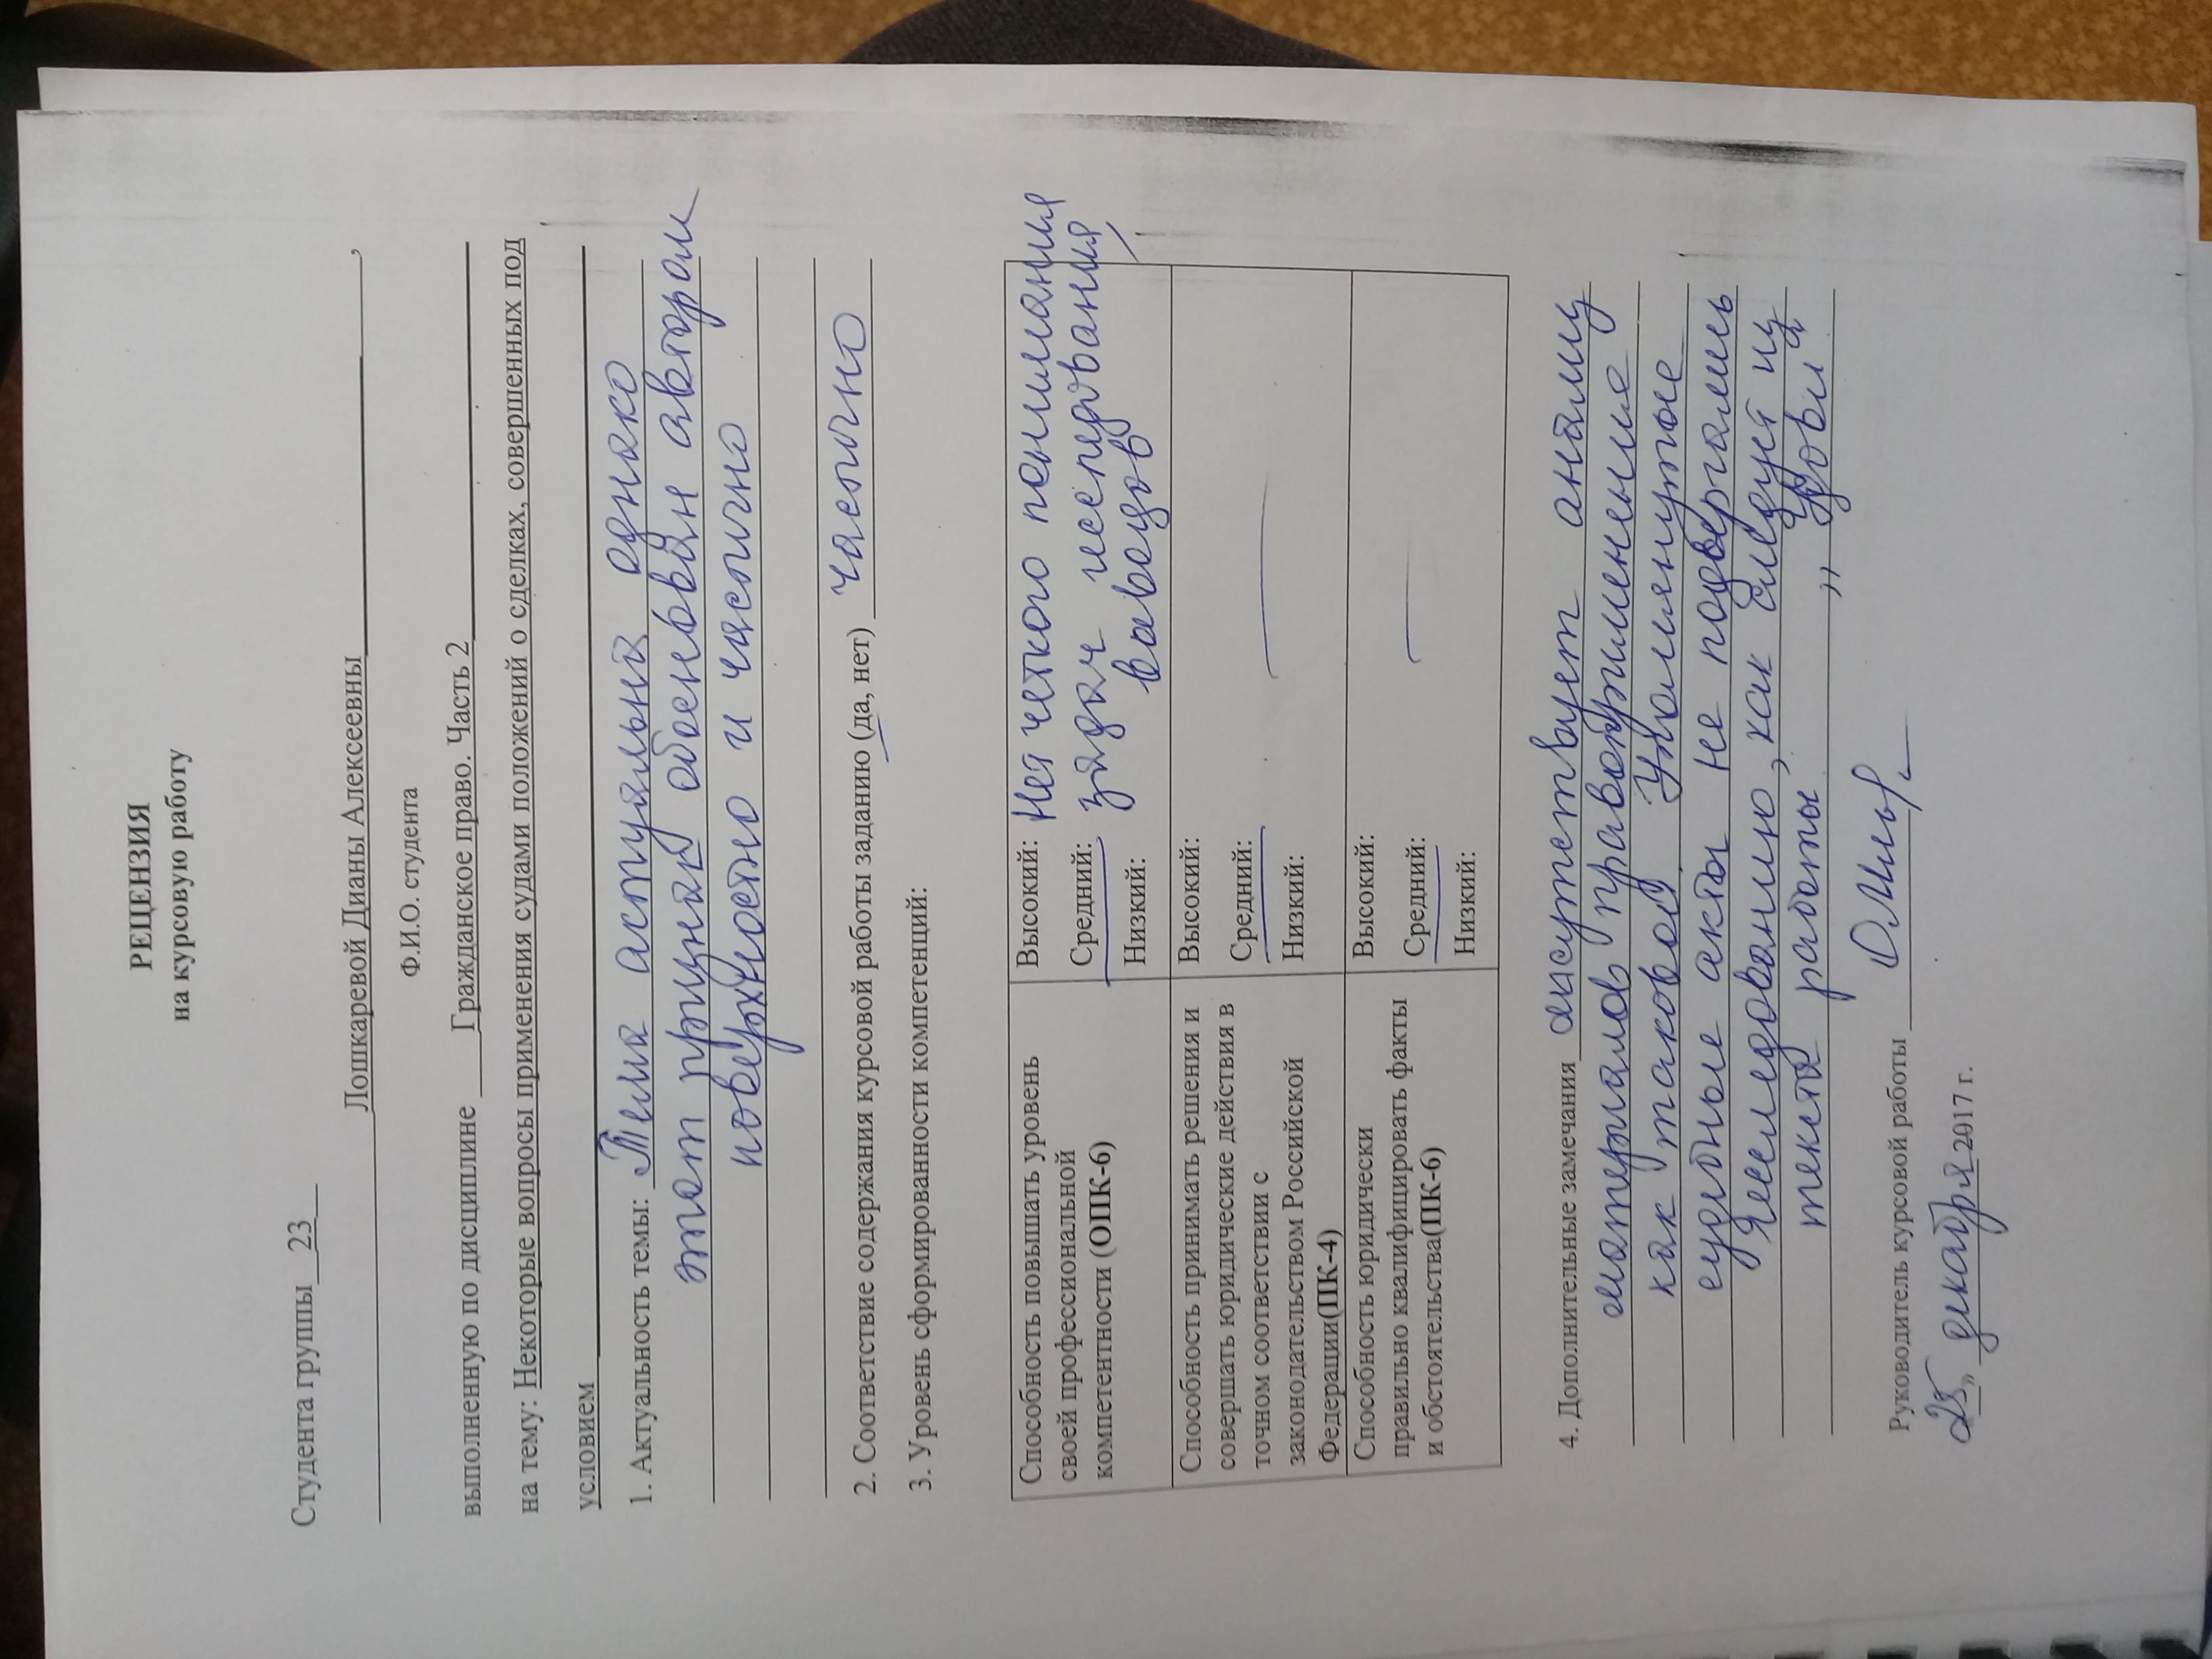 РЕЦЕНЗИЯ
на курсовую работу
Студента группы 23
Лошкаревой Дианы Алексеевны,
Ф.И.О. студента
выполненную по дисциплине Гражданское право. Часть 2
на тему: Некоторые вопросы применения судами положений о сделках, совершенных под
условием
1. Актуальность темы: Тема актуальна однако
этот признак обоснован автором
поверхностно и частично
2. Соответствие содержания курсовой работы заданию (да, нет) частично
3. Уровень сформированности компетенций:
Способность повышать уровень
своей профессиональной
компетентности (ОПК-6)
Высокий: Нет четкого понимания
Средний: задач исследования,
Низкий: выводов
Способность принимать решения и
совершать юридические действия в
точном соответствии с
законодательством Российской
Федерации(ПК-4)
Высокий:
Средний:
Низкий:
Способность юридически
правильно квалифицировать факты
и обстоятельства(ПК-6)
Высокий:
Средний:
Низкий:
4. Дополнительные замечания отсутствует анализ
материалов правоприменения
как таковой. Упомянутые
судебные акты не подвергались
исследованию, как следует из
текста работы „удовл“
Руководитель курсовой работы
25 „ декабря 2017 г.